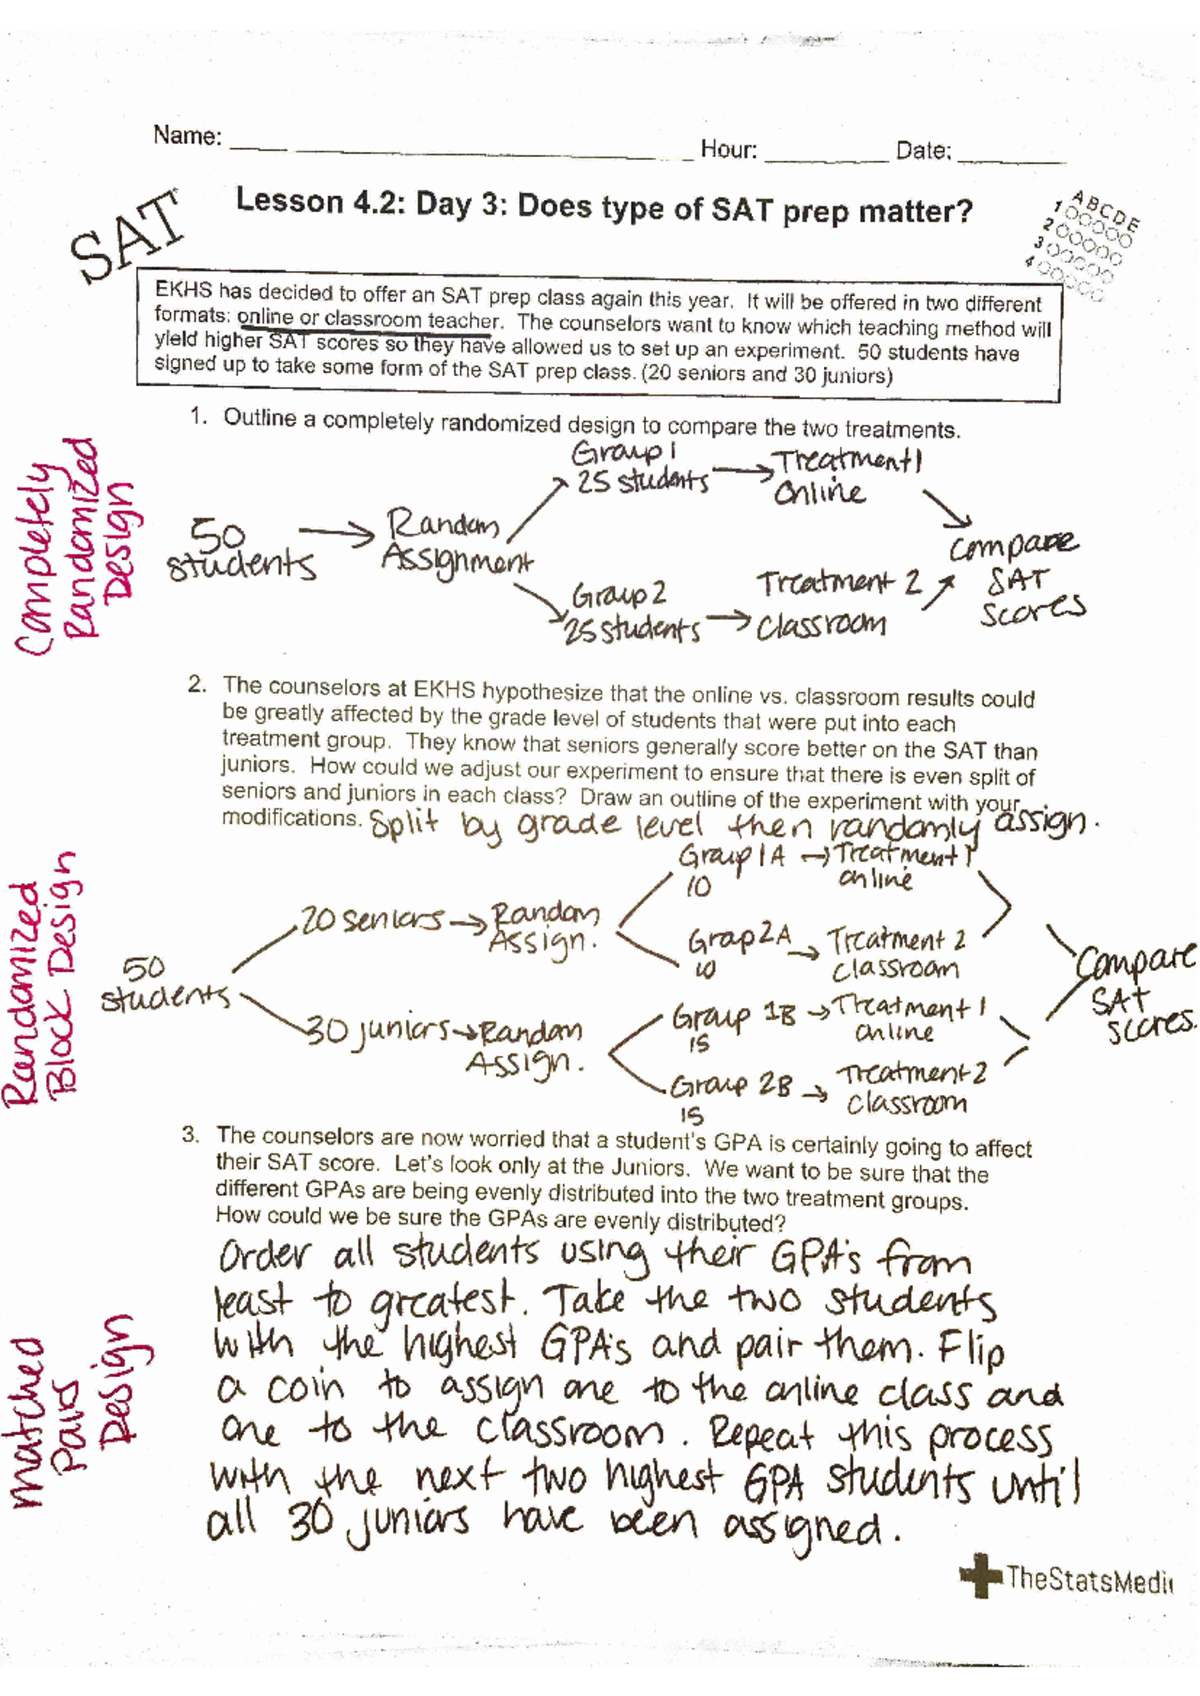 Name: ____ Hour: ____ Date: ____
SAT
Lesson 4.2: Day 3: Does type of SAT prep matter?
A B C D E
1
2
3
4
EKHS has decided to offer an SAT prep class again this year. It will be offered in two different
formats: online or classroom teacher. The counselors want to know which teaching method will
yield higher SAT scores so they have allowed us to set up an experiment. 50 students have
signed up to take some form of the SAT prep class. (20 seniors and 30 juniors)
1. Outline a completely randomized design to compare the two treatments.
Completely
Randomized
Design
50
students
Random
Assignment
Group 1
25 students
Treatment 1
Online
Group 2
25 students
Treatment 2
Classroom
Compare
SAT
Scores
2. The counselors at EKHS hypothesize that the online vs. classroom results could
be greatly affected by the grade level of students that were put into each
treatment group. They know that seniors generally score better on the SAT than
juniors. How could we adjust our experiment to ensure that there is even split of
seniors and juniors in each class? Draw an outline of the experiment with your
modifications. Split by grade level then randomly assign.
Randomized
Block Design
50
students
20 seniors
Random
Assign.
Group 1A
10
Treatment 1
online
Grap 2A
10
Treatment 2
classroom
30 juniors
Random
Assign.
Group 1B
15
Treatment 1
online
Group 2B
15
Treatment 2
classroom
Compare
SAT
scores.
3. The counselors are now worried that a student's GPA is certainly going to affect
their SAT score. Let's look only at the Juniors. We want to be sure that the
different GPAs are being evenly distributed into the two treatment groups.
How could we be sure the GPAs are evenly distributed?
Matched
Pairs
Design
Order all students using their GPA's from
least to greatest. Take the two students
with the highest GPA's and pair them. Flip
a coin to assign one to the online class and
one to the classroom. Repeat this process
with the next two highest GPA students until
all 30 juniors have been assigned.
TheStatsMedi